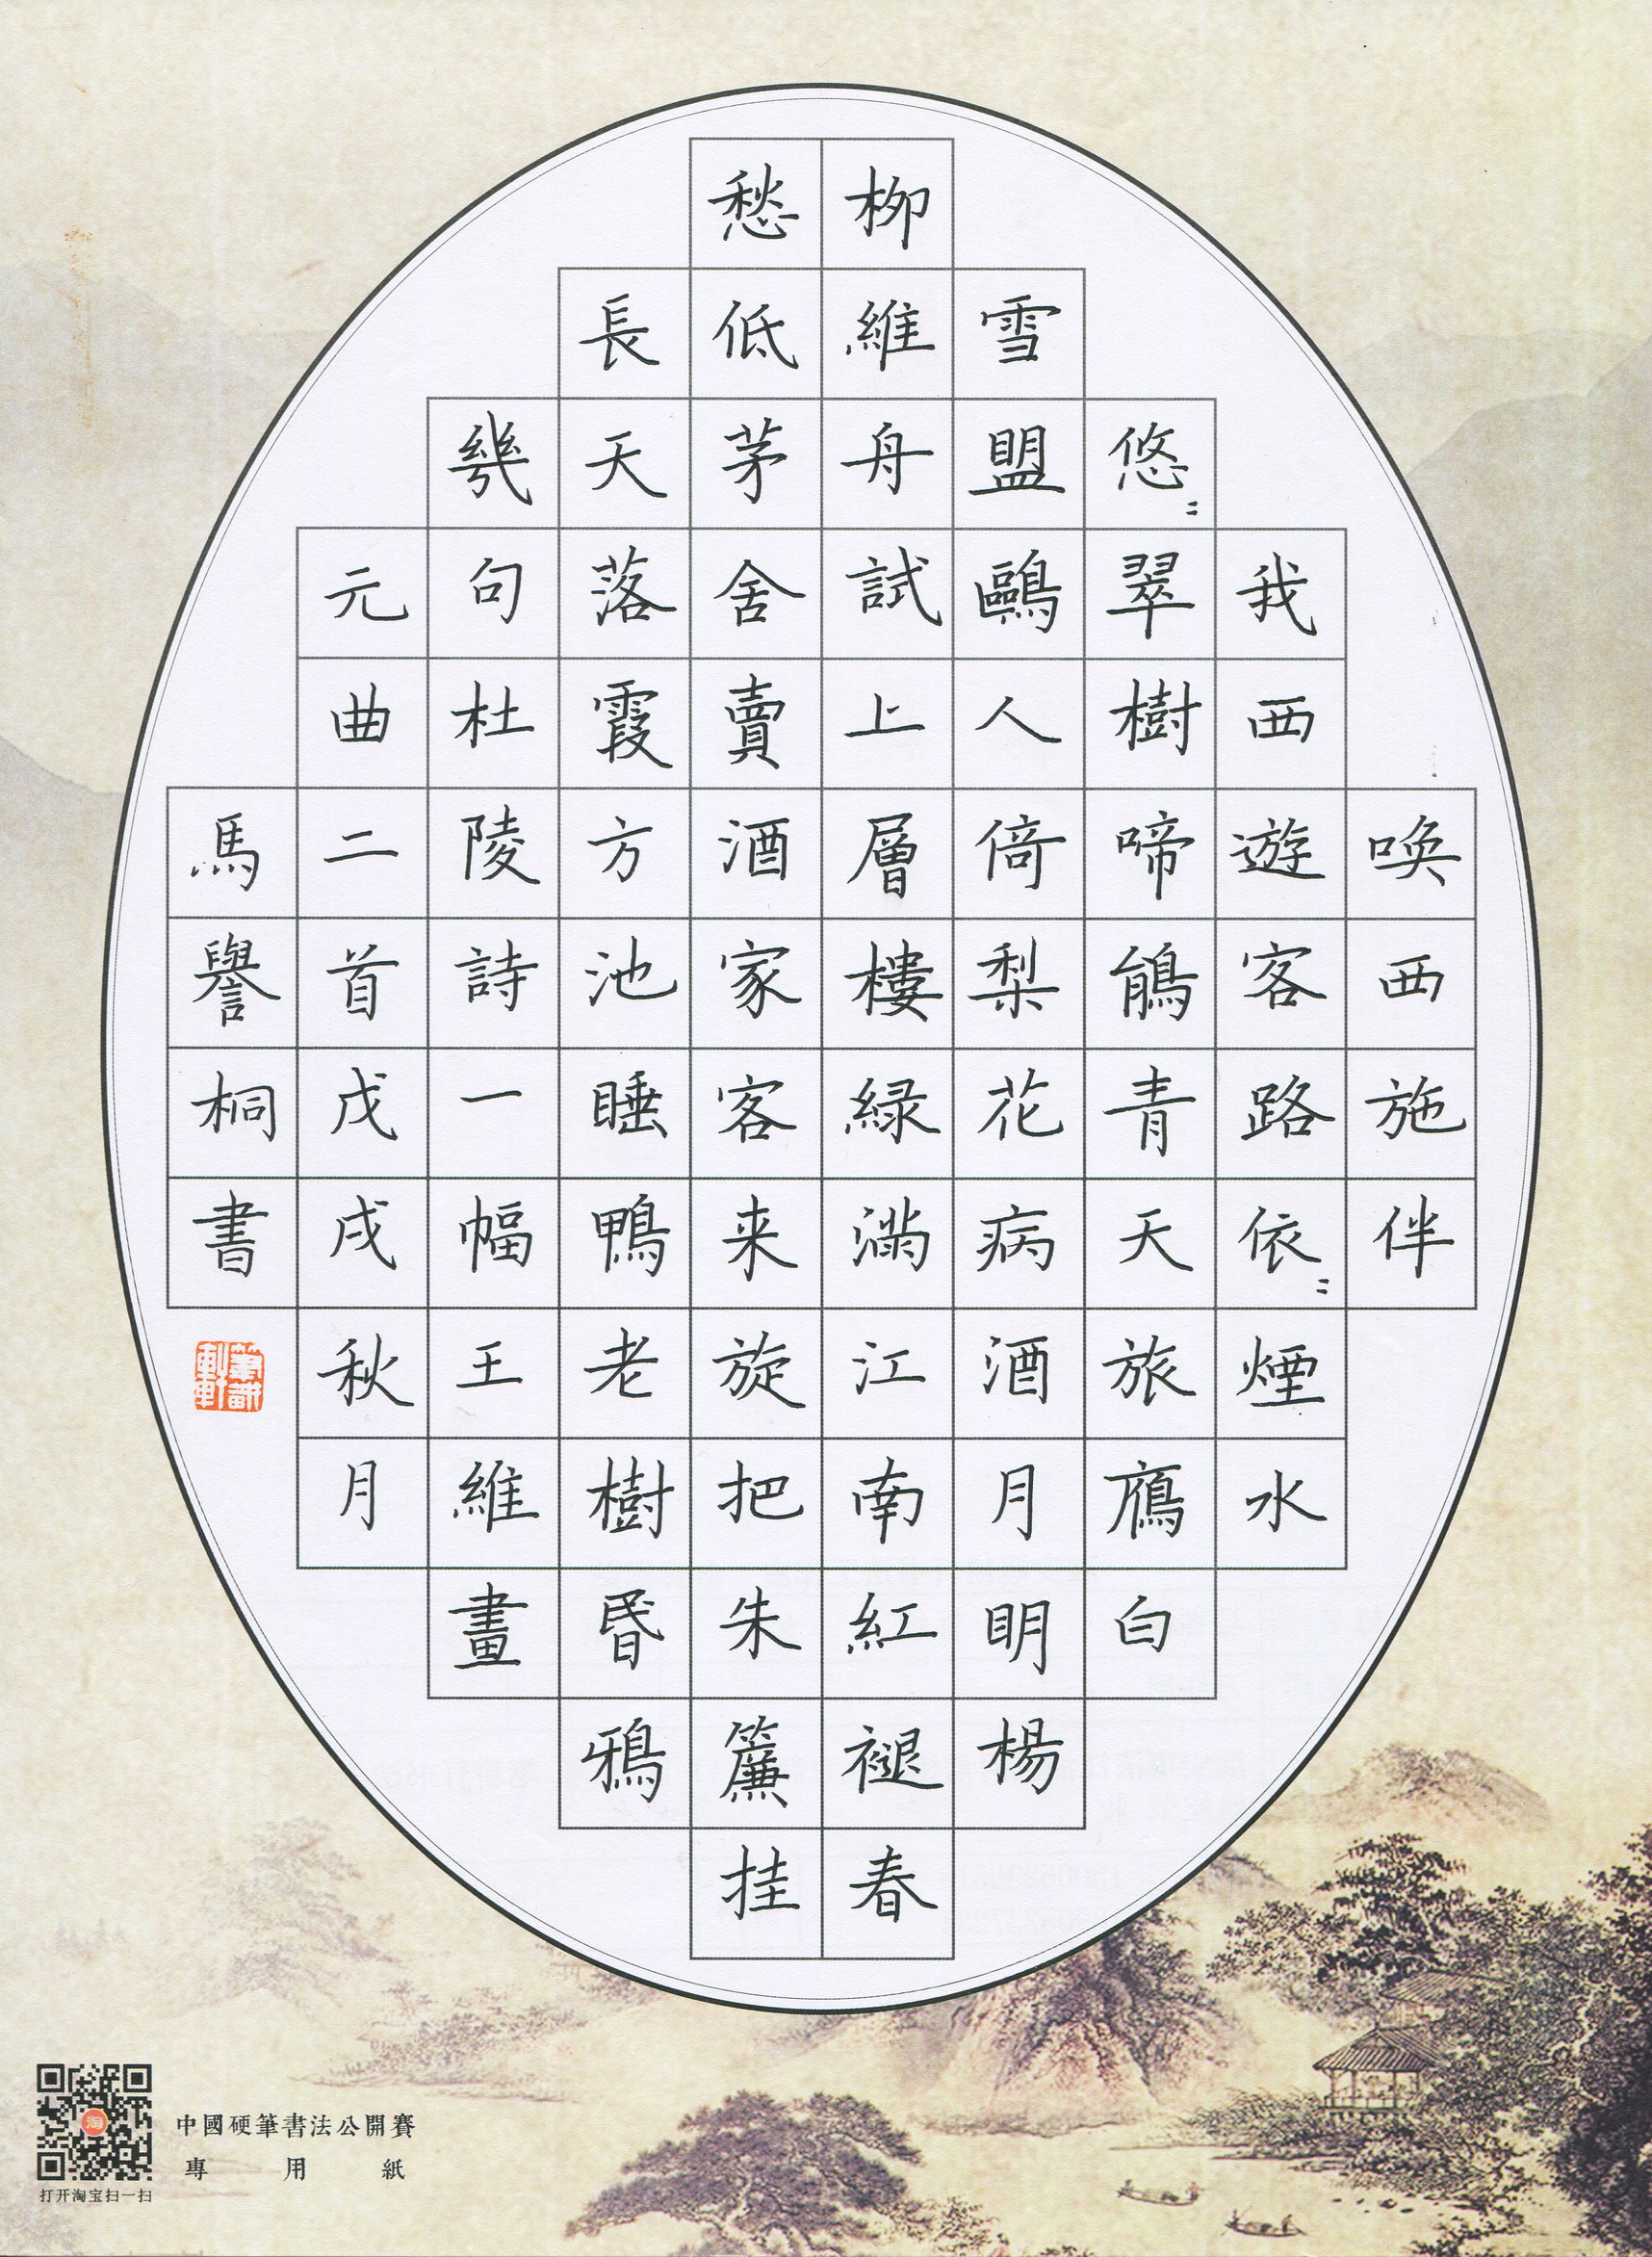 喚西施伴
我西遊客路依〻煙水
悠〻翠樹啼鵑青天旅鴈白
雪盟鷗人倚梨花病酒月明楊
柳維舟試上層樓緑滿江南紅褪春
愁低茅舍賣酒家客来旋把朱簾挂
長天落霞方池睡鴨老樹昬鴉
幾句杜陵詩一幅王維畫
元曲二首戊戌秋月
馬譽桐書
中國硬筆書法公開賽
專用紙
打开淘宝扫一扫
淘